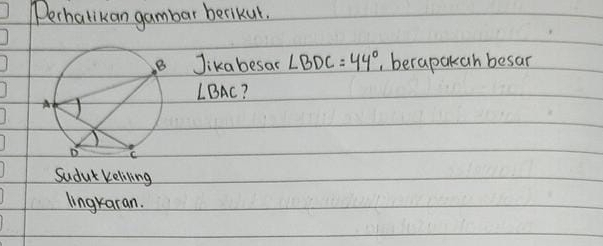 Perhatikan gambar berikut.
B
Jika besar ∠BDC = 44°, berapakah besar
∠BAC?
A
D
C
Sudut keliling
lingkaran.